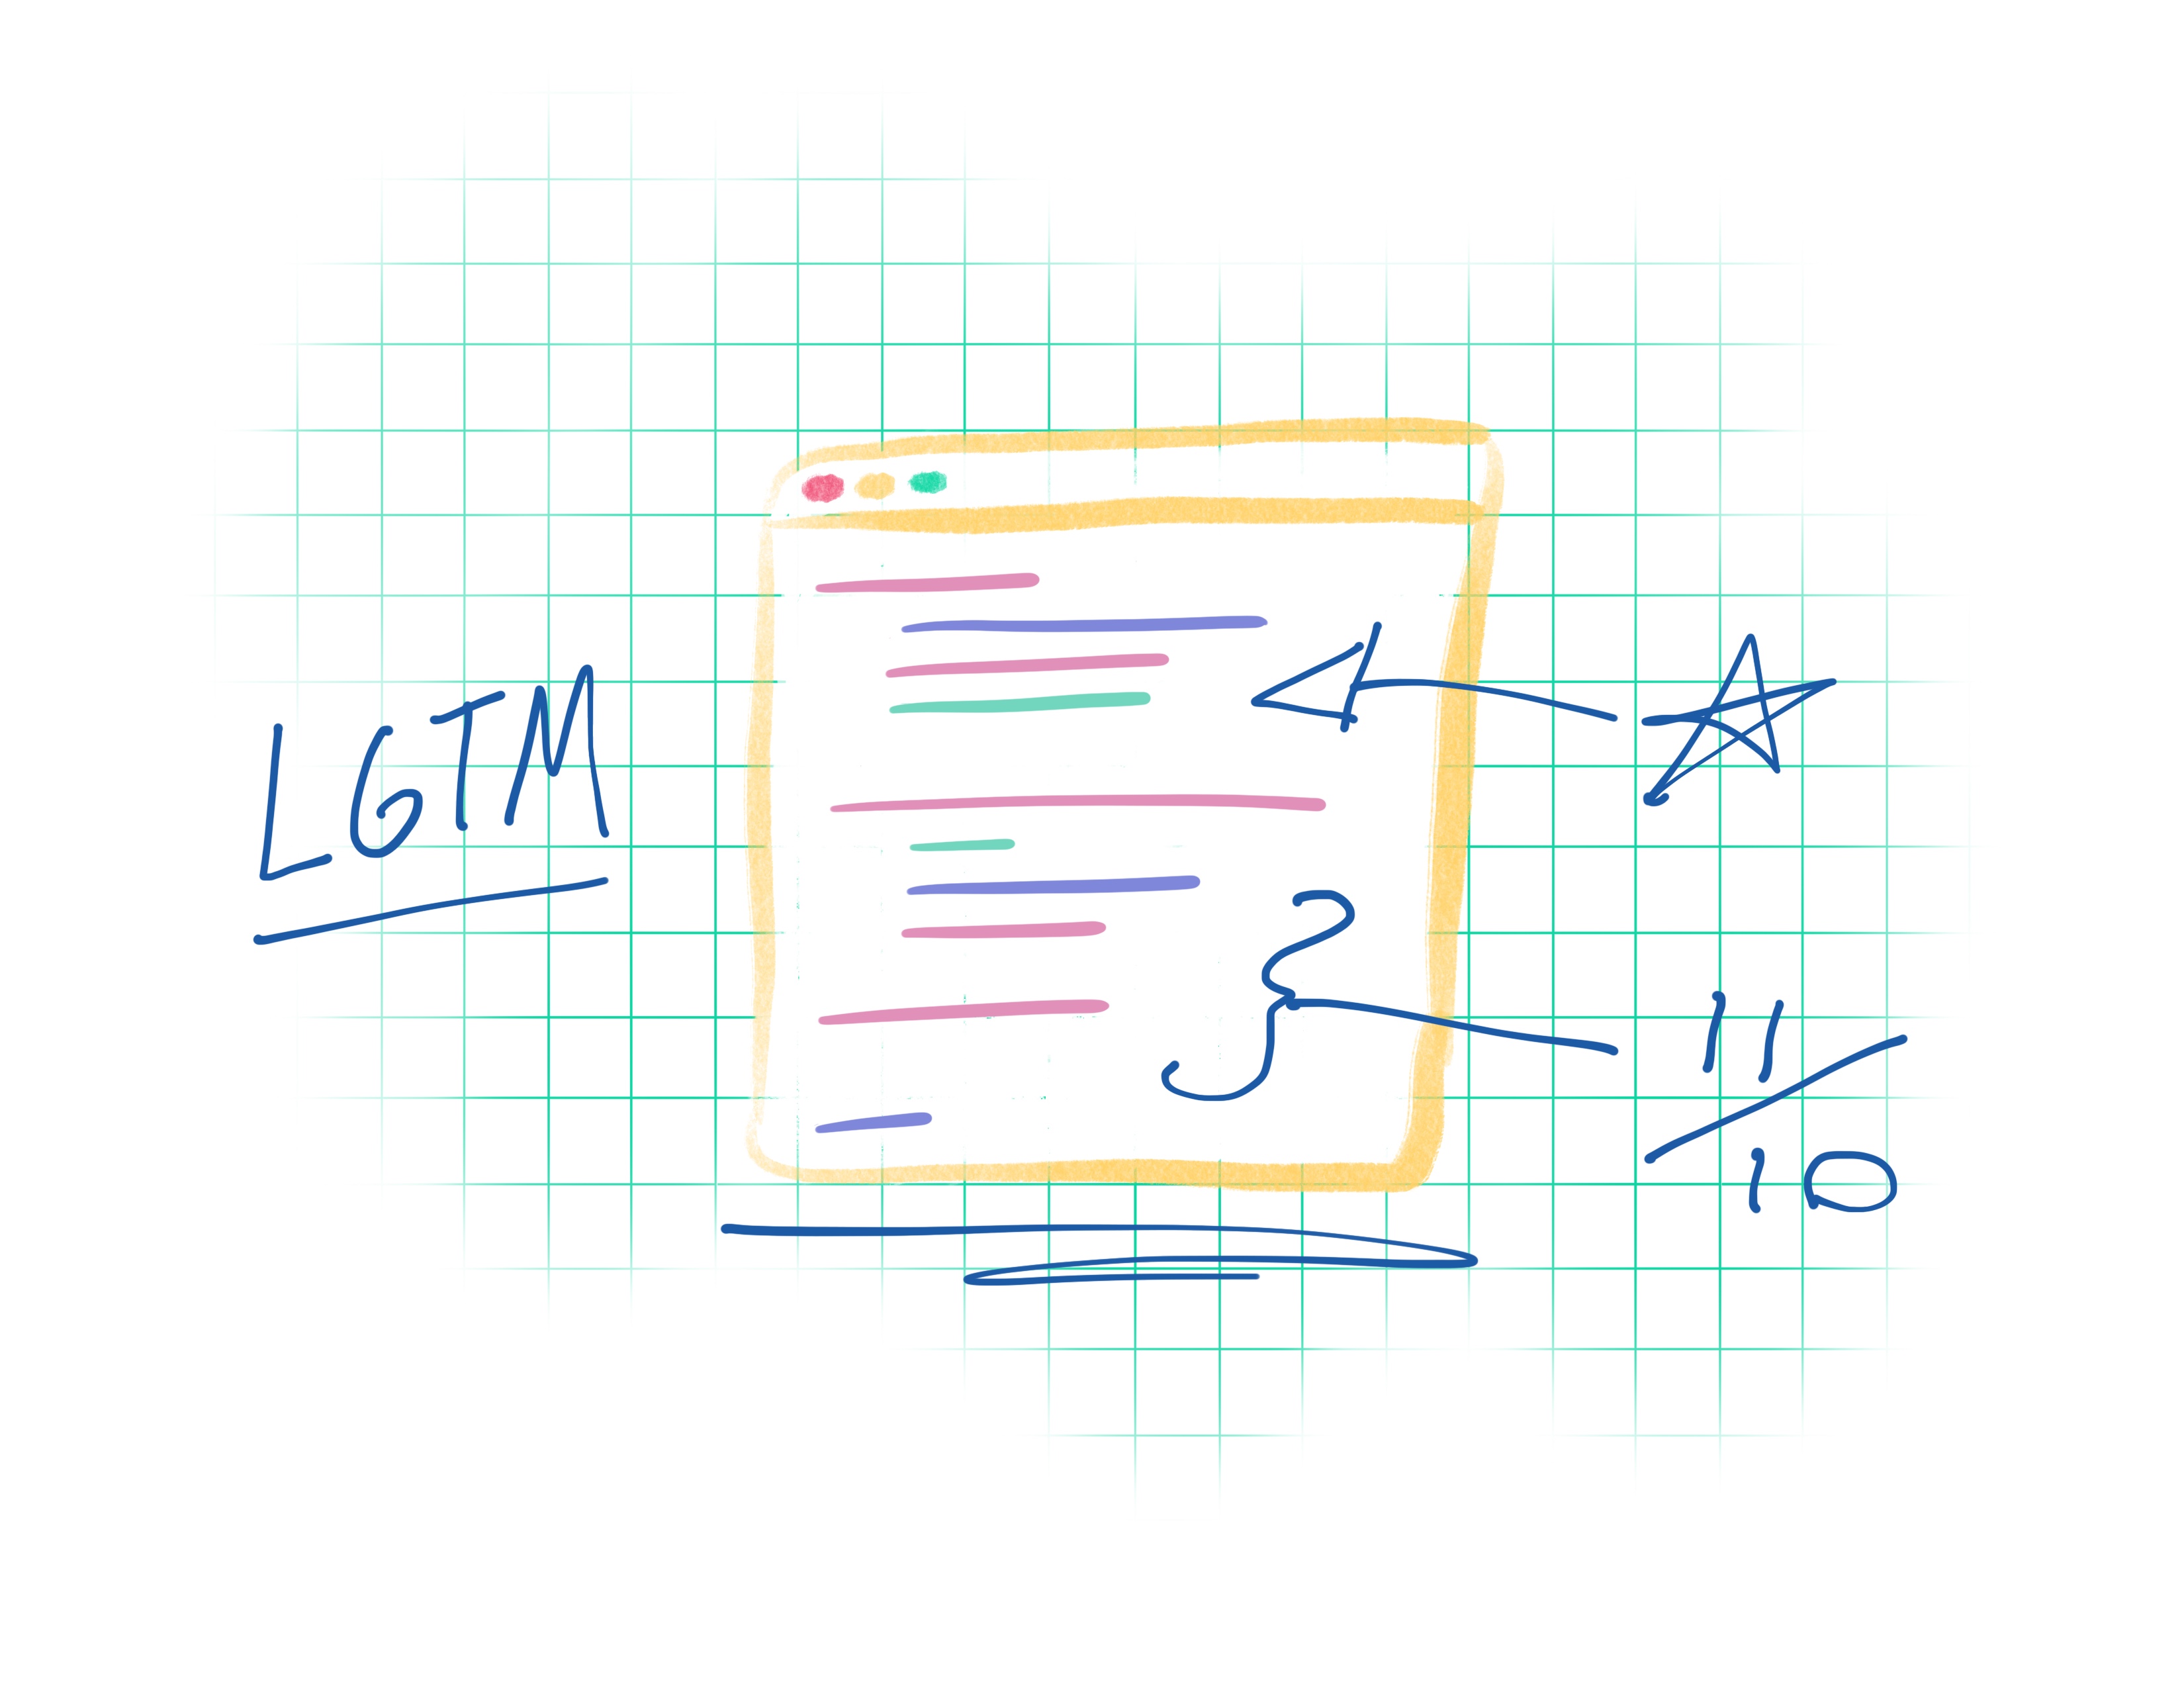 LGTM
11/10